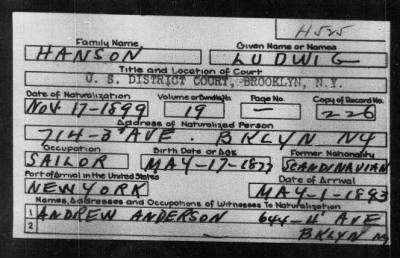 H525
Family Name Given Name or Names
HANSON LUDWIG
Title and Location of Court
U. S. DISTRICT COURT, BROOKLYN, N.Y.
Date of Naturalization Volume or Bundle No. Page No. Copy of Record No.
NOV. 17-1899 19 — 226
Address of Naturalized Person
714-3 AVE. BKLYN NY
Occupation Birth Date or Age Former Nationality
SAILOR MAY-17-1877 SCANDINAVIAN
Port of Arrival in the United States Date of Arrival
NEW YORK MAY-1-1893
Names, Addresses and Occupations of Witnesses To Naturalization
1 ANDREW ANDERSON 644-4 AVE
2 BKLYN NY